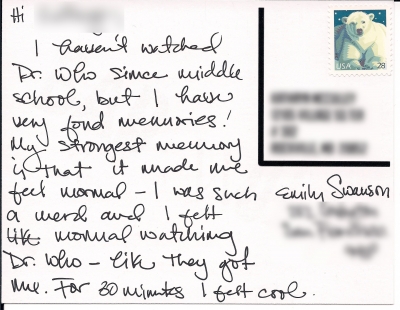 Hi
I haven't watched
Dr. Who since middle
school, but I have
very fond memories!
My strongest memory
is that it made me
feel normal – I was such
a nerd and I felt
lik normal watching
Dr. Who – like they got
me. For 30 minutes I felt cool.
USA 28
Emily Swanson